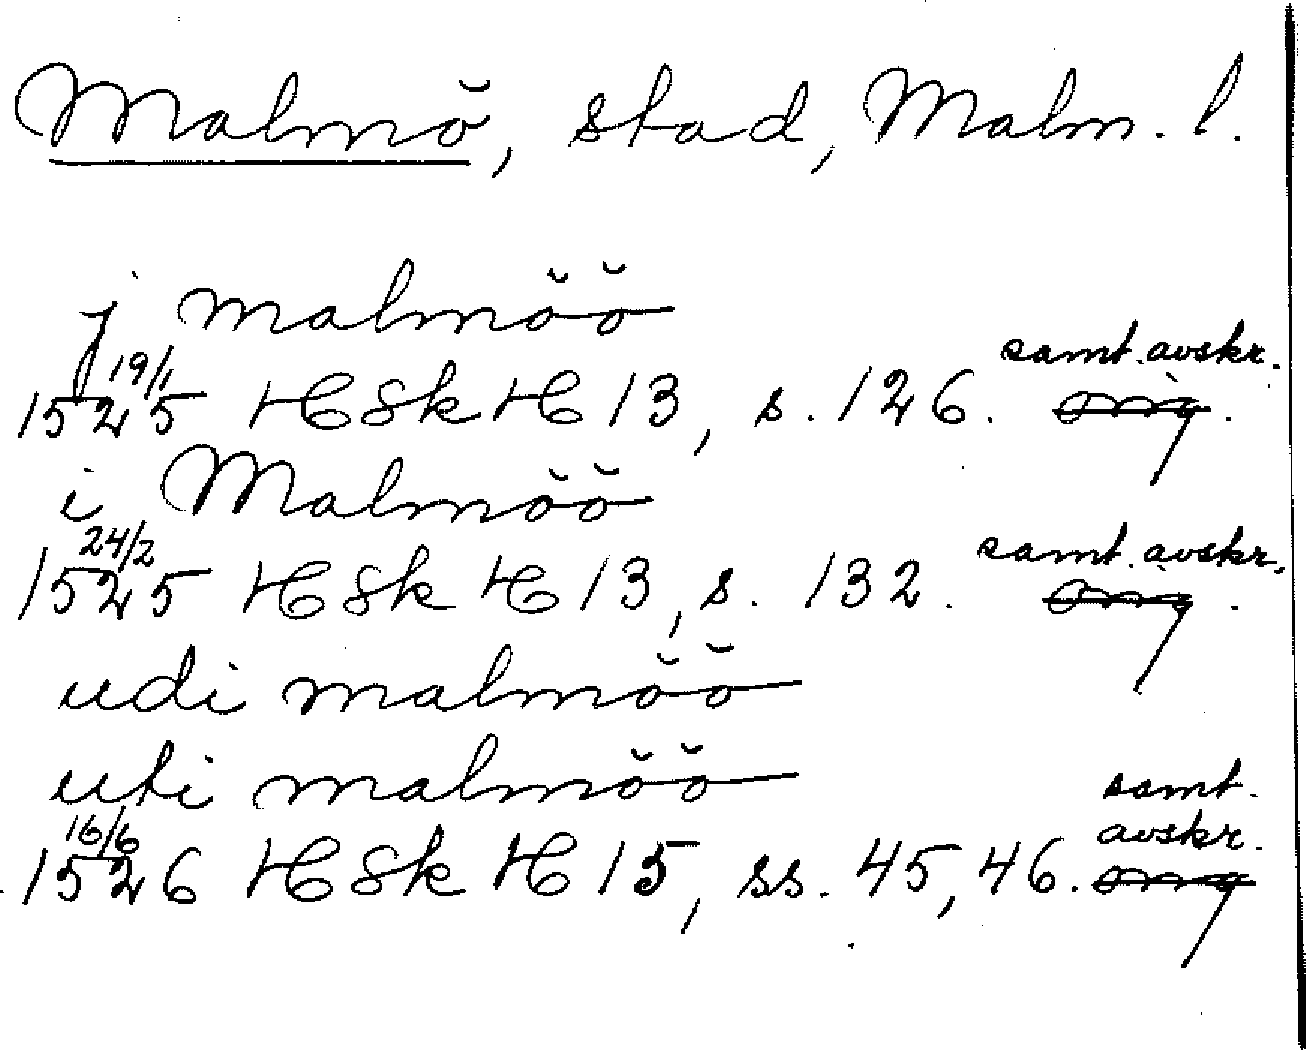 Malmö, stad, Malm. l.
j malmöö
19/1 samt. avskr.
1525 HSkH 13, s. 126. orig.
i Malmöö
24/2 samt. avskr.
1525 HSkH 13, s. 132. orig.
udi malmöö
uti malmöö
samt.
16/6 avskr.
1526 HSkH 15, ss. 45, 46. orig